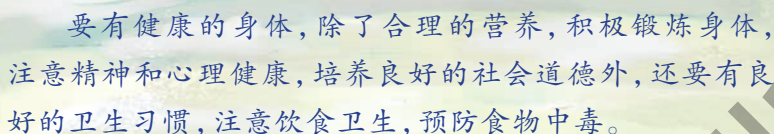 要有健康的身体,除了合理的营养,积极锻炼身体,
注意精神和心理健康,培养良好的社会道德外,还要有良
好的卫生习惯,注意饮食卫生,预防食物中毒。